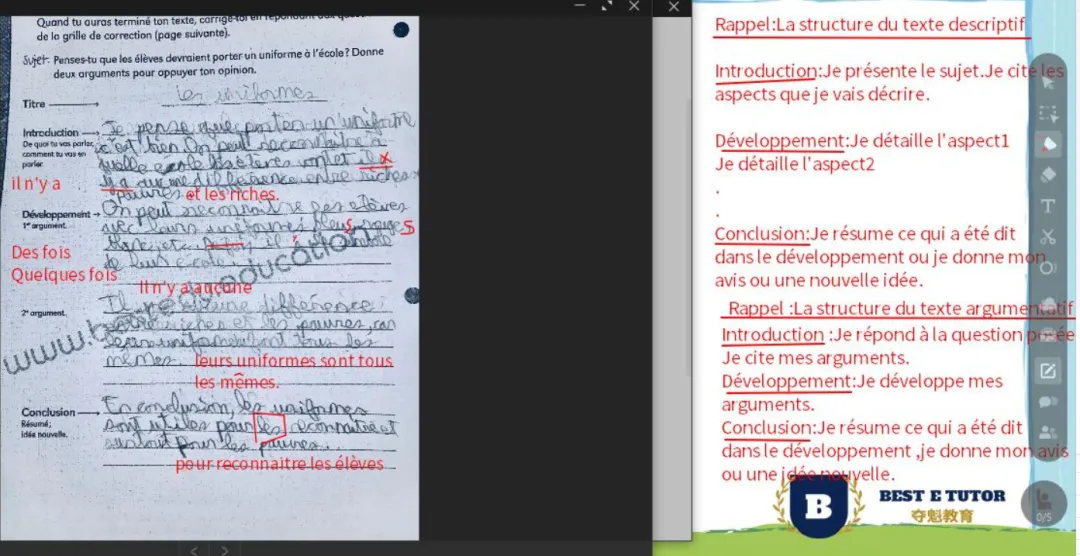 Quand tu auras terminé ton texte, corrige-toi en répondant aux
de la grille de correction (page suivante).
Sujet: Penses-tu que les élèves devraient porter un uniforme à l'école? Donne
deux arguments pour appuyer ton opinion.
Titre
les uniformes
Introduction
De quoi tu vas parler,
comment tu vas en
parler.
Je pense que porter un uniforme
c'est bien. On peut reconnaitre à
quelle école les élèves vont et il
y a aucune différence entre riches
pauvres
il n'y a
et les riches.
Développement
1er argument.
On peut reconnaitre les élèves
avec leurs uniformes bleus, rouges
blanc, etc.
il
de leurs école
Des fois
Quelques fois
Il n'y a aucune
2e argument.
Il
une différence
riches et les pauvres, car
leurs uniformes sont tous les
mêmes.
leurs uniformes sont tous
les mêmes.
Conclusion
Résumé;
idée nouvelle.
En conclusion, les uniformes
sont utiles pour les reconnaitre et
surtout pour les pauvres.
pour reconnaitre les élèves
Rappel:La structure du texte descriptif
Introduction:Je présente le sujet.Je cite les
aspects que je vais décrire.
Développement:Je détaille l'aspect1
Je détaille l'aspect2
.
.
Conclusion:Je résume ce qui a été dit
dans le développement ou je donne mon
avis ou une nouvelle idée.
Rappel :La structure du texte argumentatif
Introduction :Je répond à la question posée
Je cite mes arguments.
Développement:Je développe mes
arguments.
Conclusion:Je résume ce qui a été dit
dans le développement ,je donne mon avis
ou une idée nouvelle.
B
BEST E TUTOR
夺魁教育
0/5